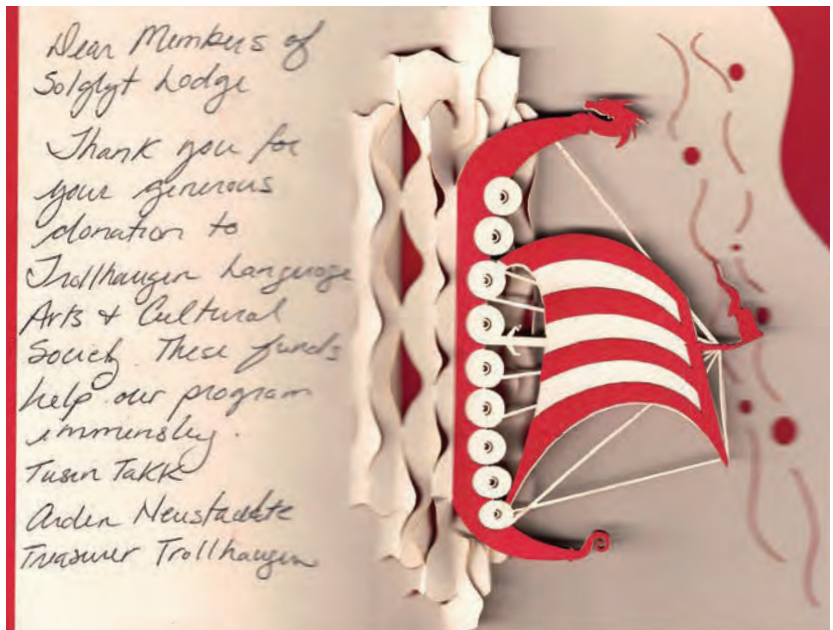 Dear Members of
Solglyt Lodge
Thank you for
your generous
donation to
Trollhaugen Language
Arts & Cultural
Society. These funds
help our program
immensley.
Tusen Takk
Arden
Treasurer Trollhaugen